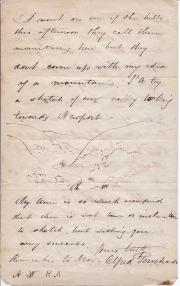 I went on one of the hills
this afternoon they call them
mountains here but they
dont come up with my idea
of a mountain, I'll try
a sketch of our valley looking
towards Newport
My time is so much occupied
that there is not time or
to sketch, but wishing you
every success.
Yours truly
Remember to Alfred